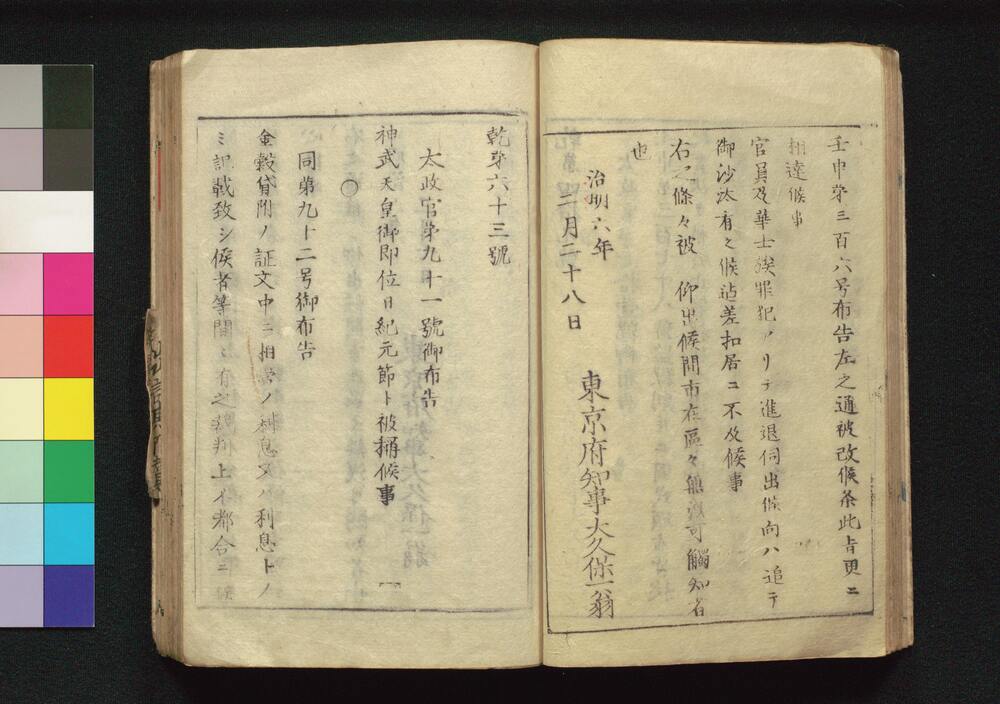 壬申第三百六号布告左之通被改候条此旨更ニ
相達候事
官員及華士族罪犯アリテ進退伺出候向ハ追テ
御沙汰有之候迠差扣居ニ不及候事
右之條々被　仰出候間市在區々無洩可觸知者
也
治明六年
二月二十八日
東京府知事大久保一翁
乾第六十三號
太政官第九十一號御布告
神武天皇御即位日紀元節ト被稱候事
○
同第九十二号御布告
金穀貸附ノ証文中ニ相当ノ利息又ハ利息トノ
ミ記載致シ候者等間々有之裁判上不都合ニ候